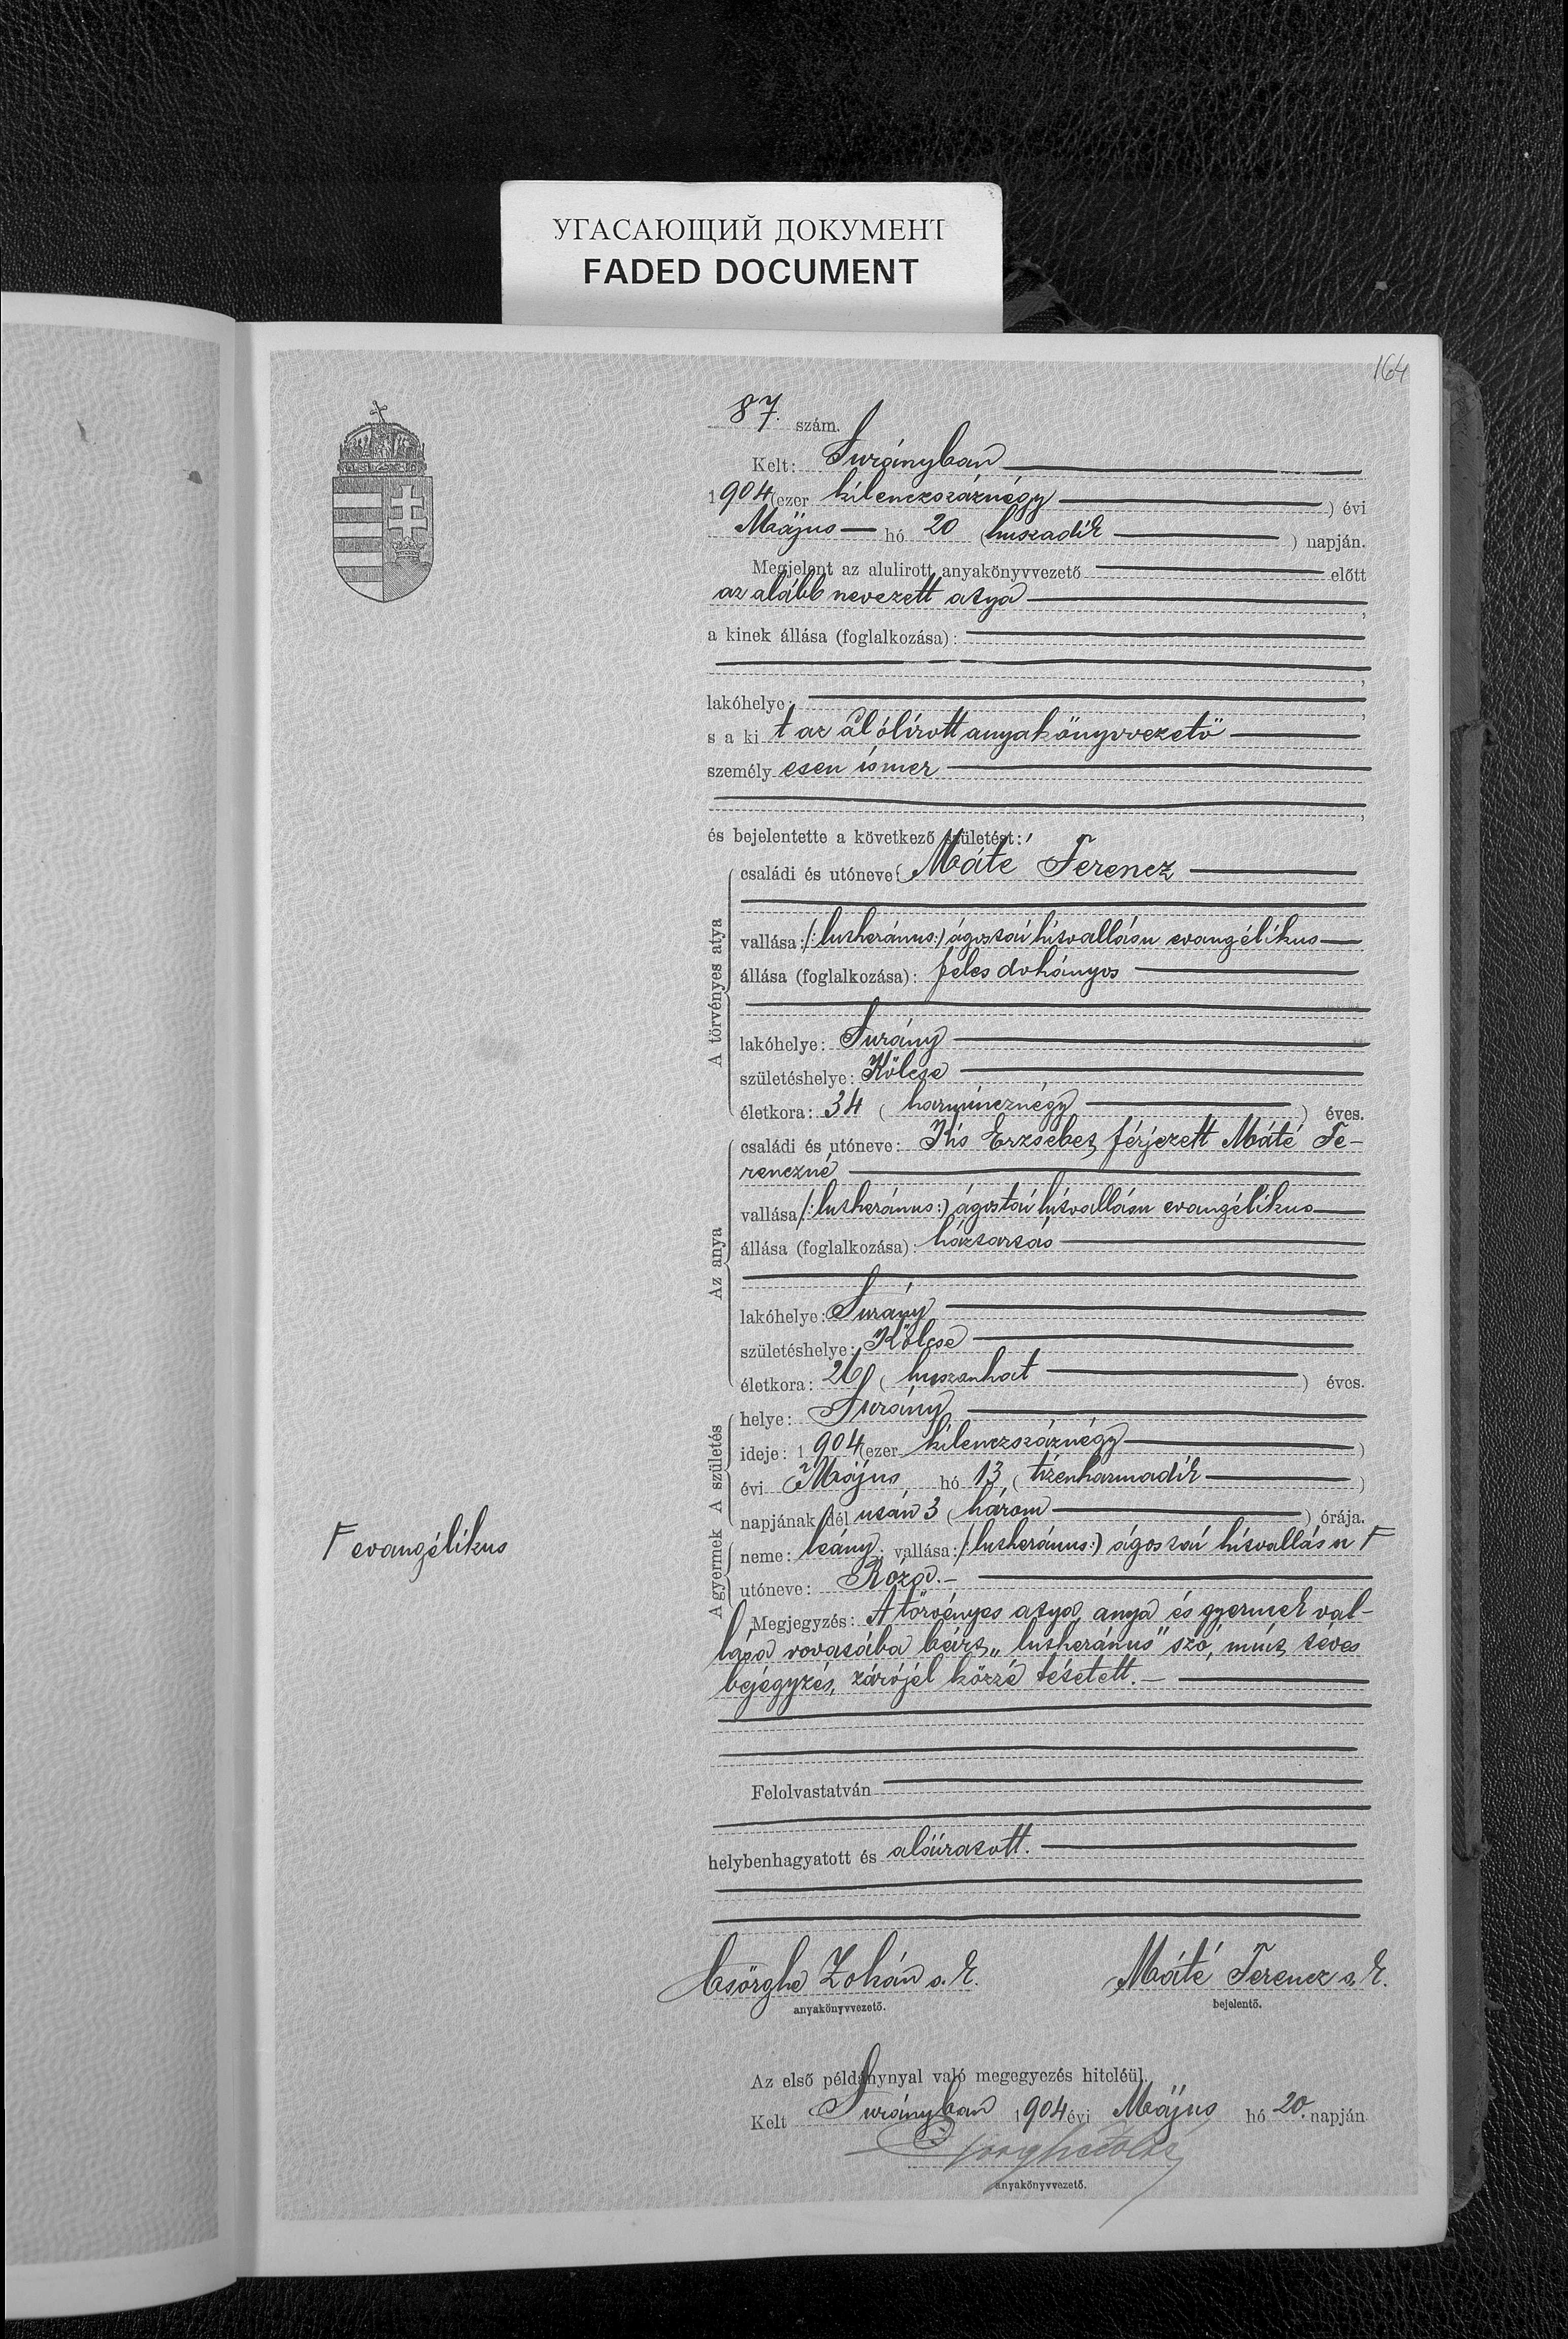 УГАСАЮЩИЙ ДОКУМЕНТ
FADED DOCUMENT
164
87. szám.
Kelt: Surányban
1904 (ezer kilenczszáznégy) évi
Május hó 20 (huszadik) napján.
Megjelent az alulirott anyakönyvvezető előtt
az alább nevezett atya,
a kinek állása (foglalkozása):
,
lakóhelye: ,
s a ki t az alólírott anyakönyvvezető
személy esen ismer
,
és bejelentette a következő születést:
A törvényes atya
családi és utóneve: Máté Ferencz
vallása: /:lutheránus:/ ágostai hitvallásu evangélikus
állása (foglalkozása): feles dohányos
lakóhelye: Surány
születéshelye: Kölcse
életkora: 34 (harmincznégy) éves.
Az anya
családi és utóneve: Kis Erzsébet, férjezett Máté Fe-
renczné
vallása /:lutheránus:/ ágostai hitvallásu evangélikus
állása (foglalkozása): háztartás
lakóhelye: Surány
születéshelye: Kölcse
életkora: 26 (huszonhat) éves.
A születés
helye: Surány
ideje: 1904 (ezer kilenczszáznégy)
évi Május hó 13 (tizenharmadik)
napjának dél után 3 (három) órája.
A gyermek
neme: leány; vallása: /:lutheránus:/ ágostai hitvallásu F
F evangélikus
utóneve: Róza.-
Megjegyzés: A törvényes atya, anya és gyermek val-
lása rovatába beírt „lutheránus" szó, mint téves
bejegyzés, zárójel közzé tétetett.-
Felolvastatván
helybenhagyatott és aláiratott.
Csörghe Zoltán s. k. Máté Ferencz s. k.
anyakönyvvezető. bejelentő.
Az első példánynyal való megegyezés hiteléül.
Kelt Surányban 1904 évi Május hó 20. napján
anyakönyvvezető.